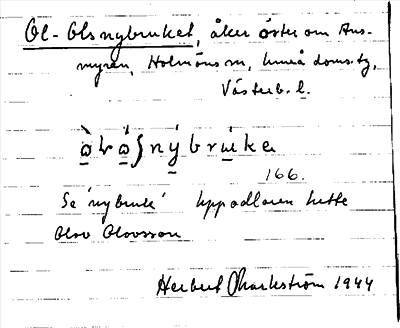 Ol-Olsnybruket, åker öster om Ans-
myran, Holmöns sn, Umeå doms.tg,
Västerb. l.
166.
Se 'nybruk' Uppodlaren hette
Olov Olovsson
Herbert Markström 1944